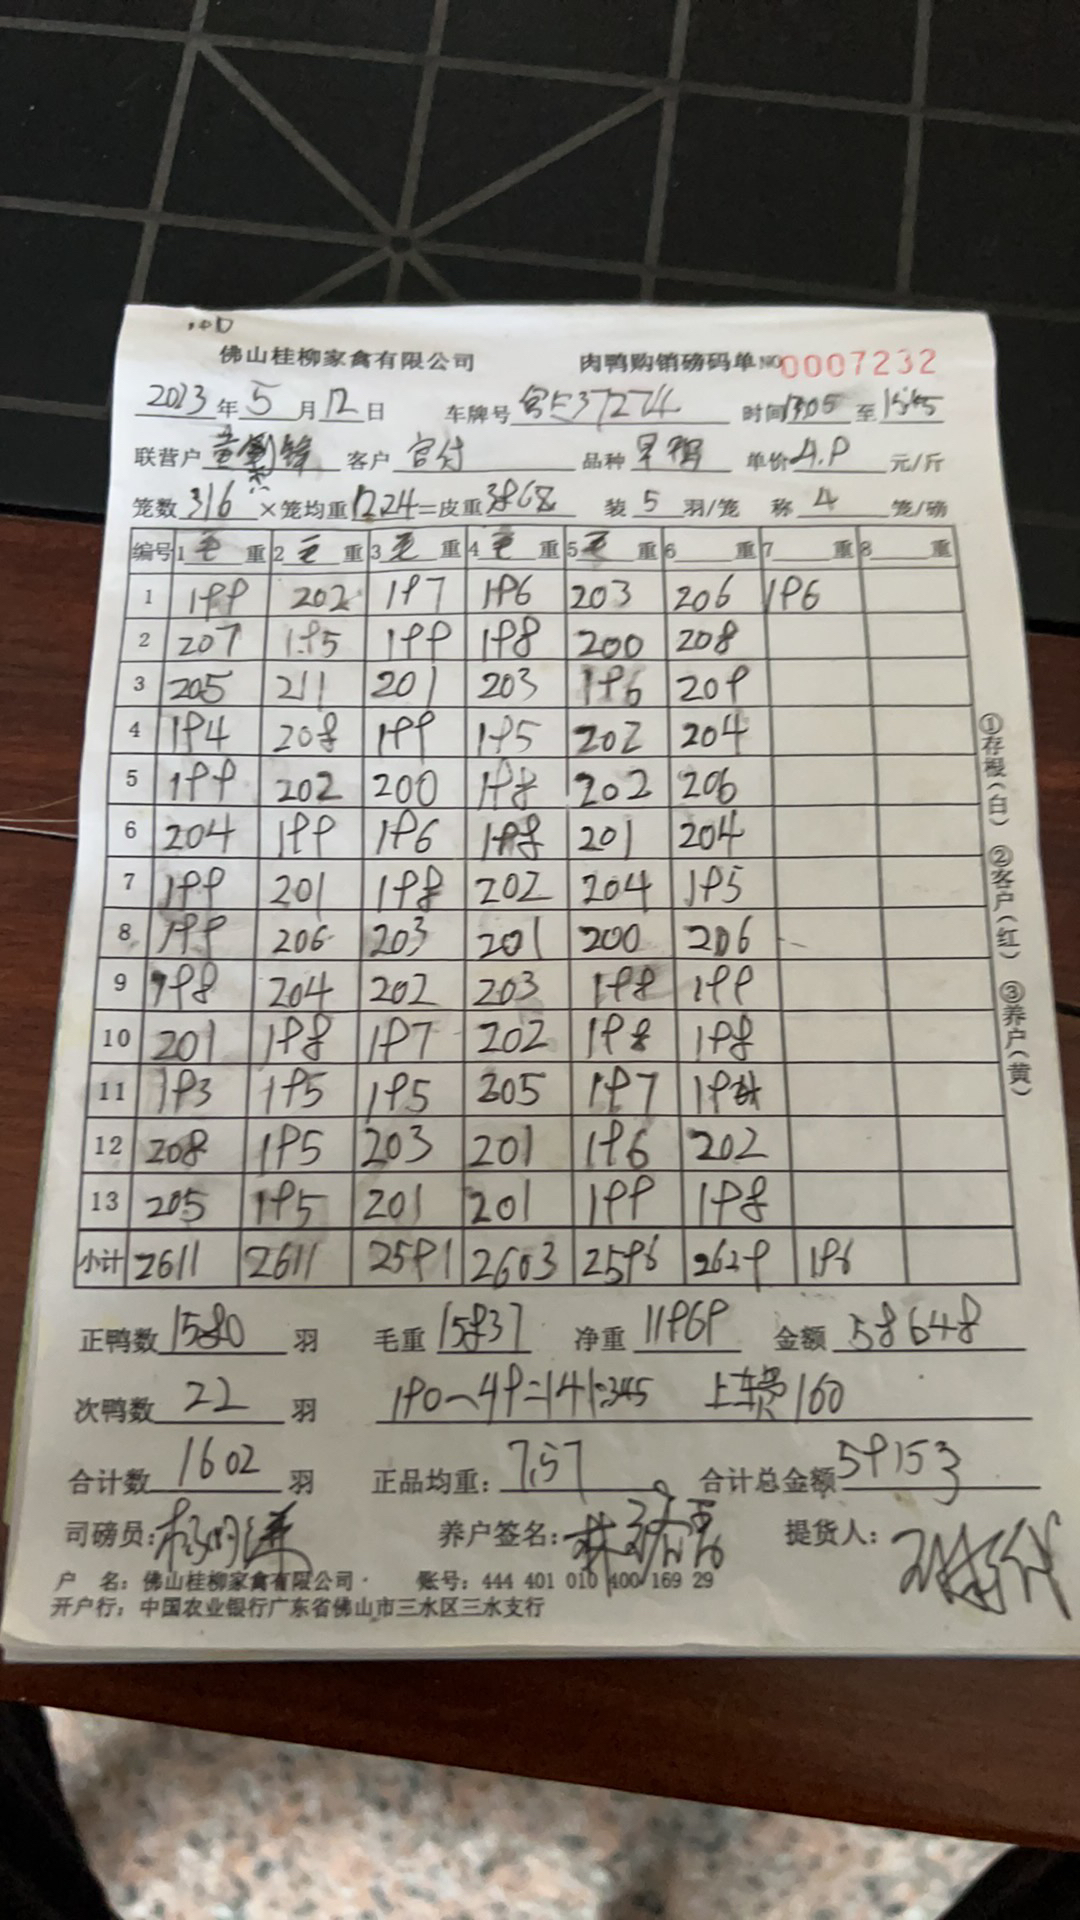 佛山桂柳家禽有限公司 肉鸭购销磅码单 NO 0007232
2023年5月12日 车牌号 37274 时间 1305 至 1545
联营户 锋 客户 官付 品种 单价 4.9 元/斤
笼数 316 ×笼均重 12.24 =皮重 3868 装 5 羽/笼 称 4 笼/磅
编号 1 毛 重 2 毛 重 3 毛 重 4 毛 重 5 毛 重 6 重 7 重 8 重
1 199 202 197 196 203 206 196
2 207 195 199 198 200 208
3 205 211 201 203 196 209
4 194 208 199 195 202 204
5 199 202 200 198 202 206
6 204 199 196 198 201 204
7 199 201 198 202 204 195
8 199 206 203 201 200 206
9 198 204 202 203 198 199
10 201 198 197 202 198 198
11 193 195 195 205 197
12 208 195 203 201 196 202
13 205 195 201 201 199 198
小计 2611 2611 2591 2603 2596 2629 196
正鸭数 1580 羽 毛重 15837 净重 11969 金额 58648
次鸭数 22 羽 190-49=141=345 上车费 160
合计数 1602 羽 正品均重: 7.57 合计总金额 59153
司磅员: 养户签名: 提货人:
户 名: 佛山桂柳家禽有限公司 账号: 444 401 010 400 169 29
开户行: 中国农业银行广东省佛山市三水区三水支行
①存根(白) ②客户(红) ③养户(黄)